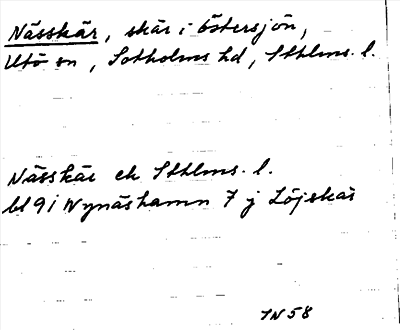 Nässkär, skär i Östersjön,
Utö sn, Sotholms hd, Sthlms. l.
Nässkär ek Sthlms. l.
bl 91 Nynäshamn 7 j Löjskär
IN 58